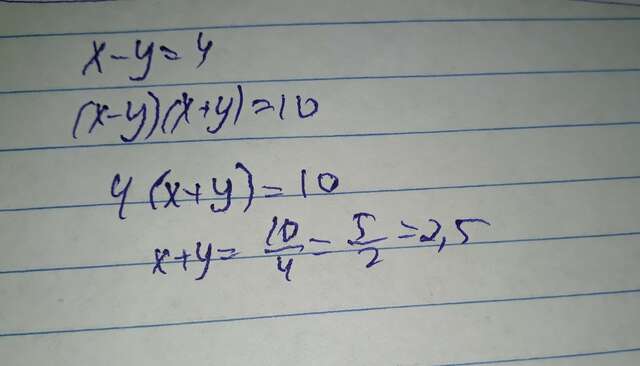 x-y=4
(x-y)(x+y)=10
4(x+y)=10
x+y=10/4=5/2=2,5